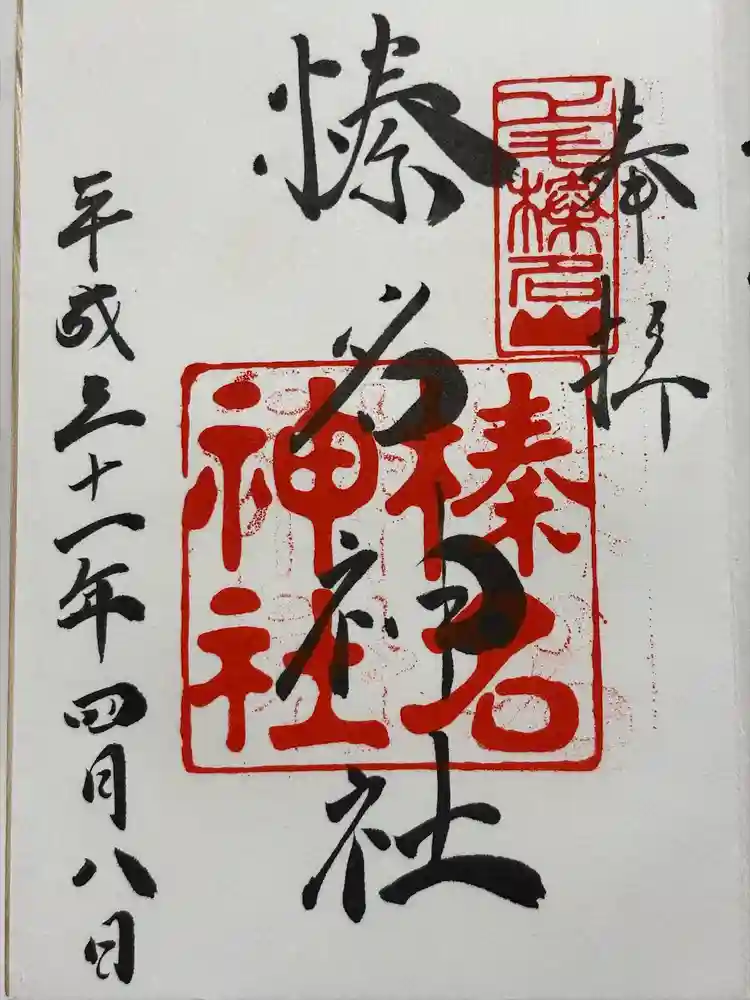 奉拝
上毛榛名山
榛名神社
榛名
神社
平成三十一年四月八日